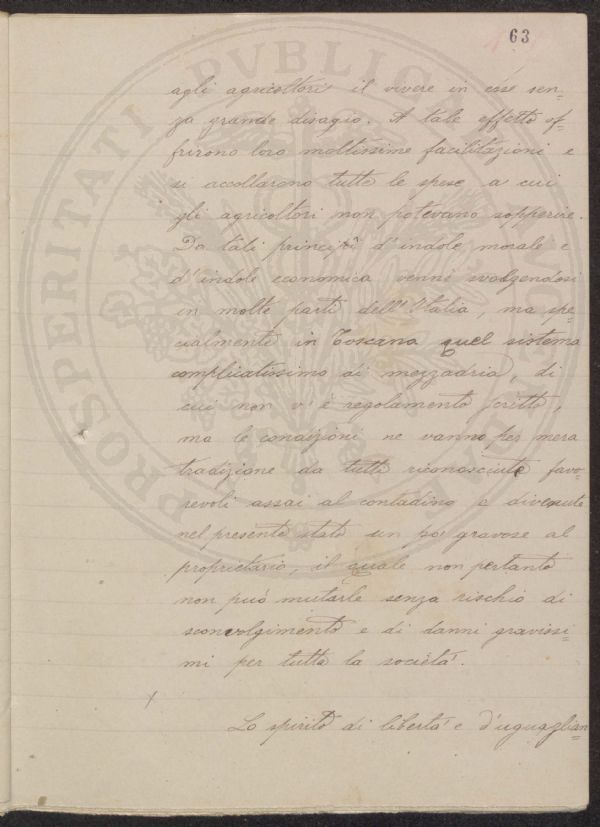 63
agli agricoltori il vivere in esse sen=
za grande disagio. A tale effetto of=
frirono loro moltissime facilitazioni e
si accollarono tutte le spese a cui
gli agricoltori non potevano sopperire.
Da tali principî d'indole morale e
d'indole economica venne svolgendosi
in molte parti dell'Italia, ma spe=
cialmente in Toscana quel sistema
complicatissimo di mezzadria, di
cui non v'è regolamento scritto,
ma le condizioni ne vanno per mera
tradizione da tutti riconosciute favo=
revoli assai al contadino e divenute
nel presente stato un po' gravose al
proprietario, il quale non pertanto
non può mutarle senza rischio di
sconvolgimento e di danni gravissi=
mi per tutta la società.
Lo spirito di libertà e d'uguaglian=
PROSPERITATI PVBLICAE AVGENDAE